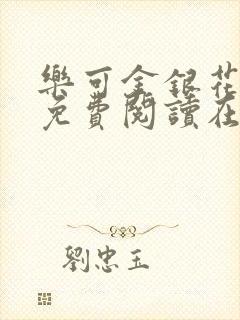 樂可金銀花
免費閱讀在
劉忠玉